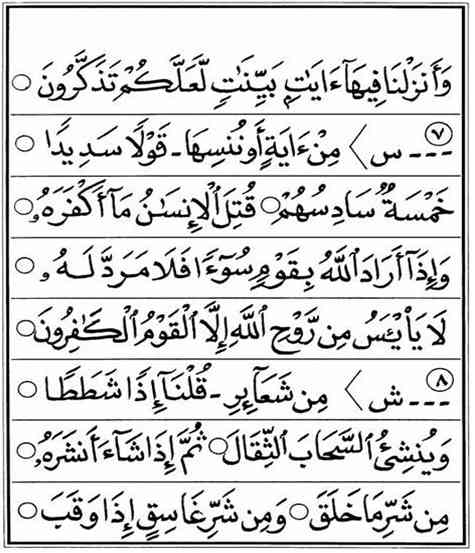 وَأَنزَلْنَا فِيهَآ ءَايَٰتِۭ بَيِّنَٰتٍ لَّعَلَّكُمْ تَذَكَّرُونَ ○
٧ --- س 〉 مِنْ ءَايَةٍ أَوْ نُنسِهَا - قَوْلًا سَدِيدًا ○
خَمْسَةٌ سَادِسُهُمْ ○ قُتِلَ ٱلْإِنسَٰنُ مَآ أَكْفَرَهُۥ ○
وَإِذَآ أَرَادَ ٱللَّهُ بِقَوْمٍ سُوٓءًا فَلَا مَرَدَّ لَهُۥ ○
لَا يَا۟يْـَٔسُ مِن رَّوْحِ ٱللَّهِ إِلَّا ٱلْقَوْمُ ٱلْكَٰفِرُونَ ○
٨ --- ش 〉 مِن شَعَآئِرِ - قُلْنَآ إِذًا شَطَطًا ○
وَيُنشِئُ ٱلسَّحَابَ ٱلثِّقَالَ ○ ثُمَّ إِذَا شَآءَ أَنشَرَهُۥ ○
مِن شَرِّ مَا خَلَقَ ○ وَمِن شَرِّ غَاسِقٍ إِذَا وَقَبَ ○